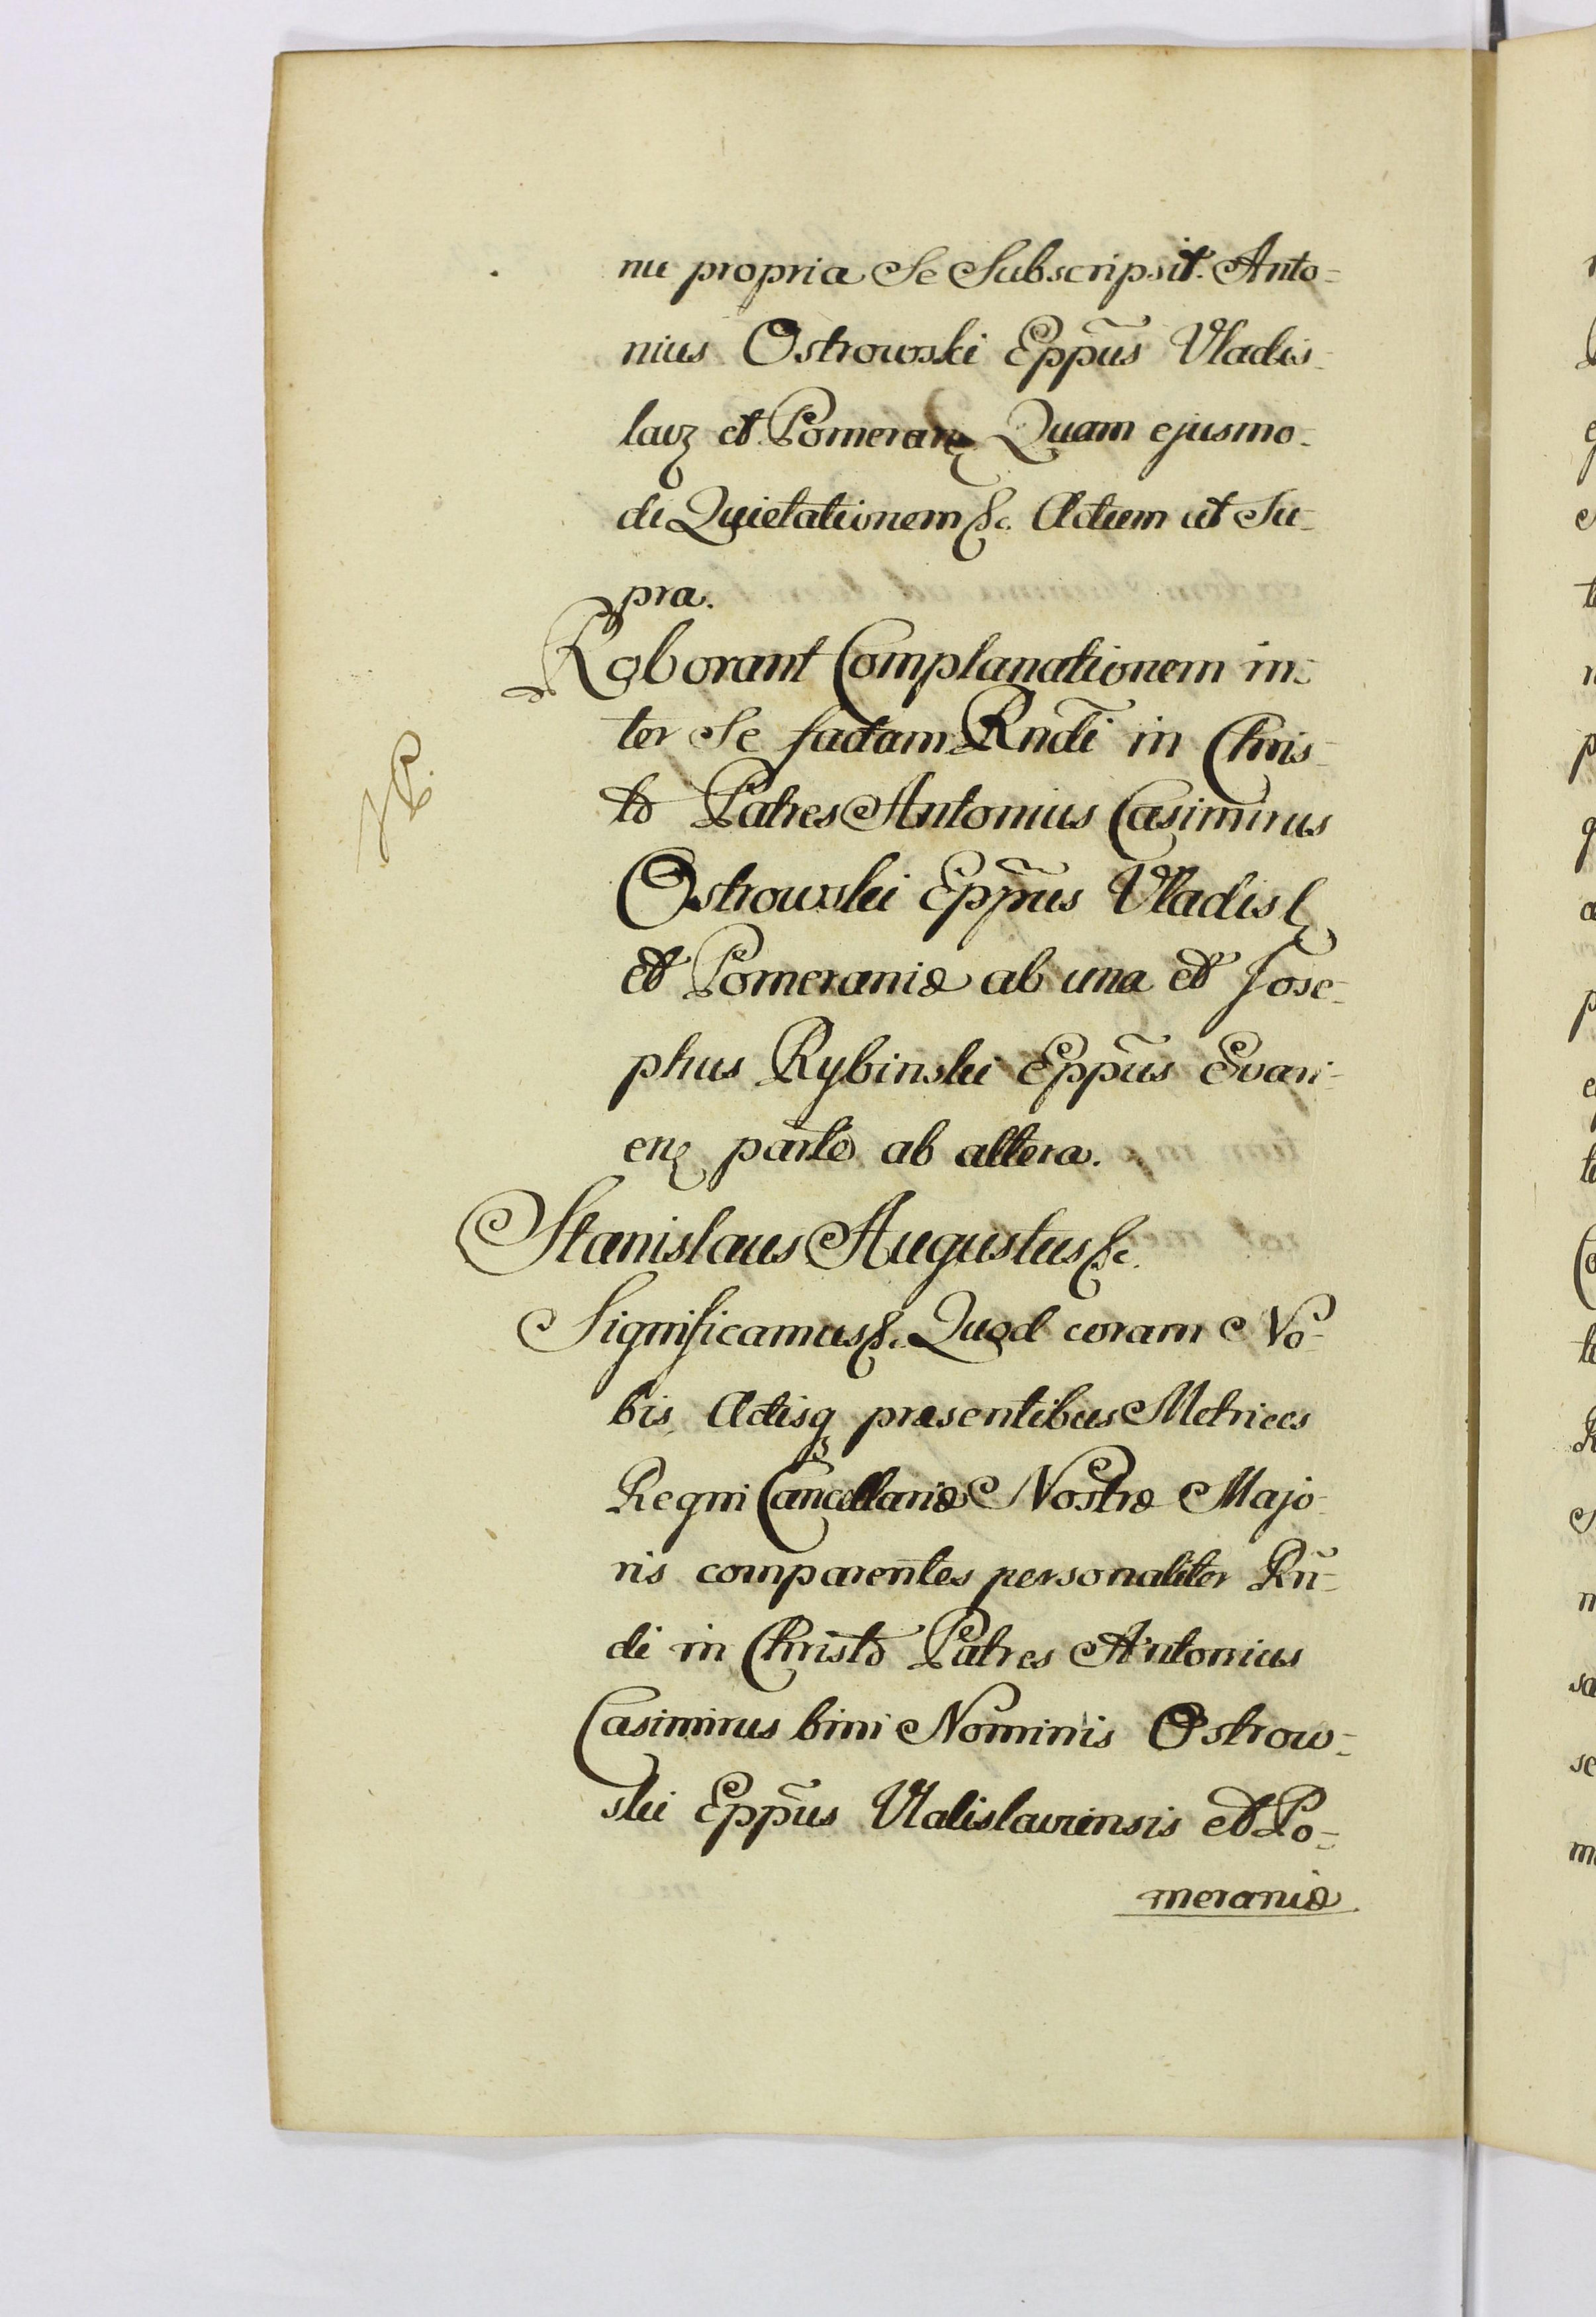 nu propria se subscripsit. Anto=
nius Ostrowski Epp̃us Vladis=
lavꝫ et Pomeranꝫ Quam ejusmo=
di Quietationem &c. Actum ut su=
pra.
Roborant Complanationem in=
ter se factam Rndĩ in Chris=
to Patres Antonius Casimirus
Ostrowski Epp̃us Vladislꝫ
et Pomeraniæ ab una et Jose=
phus Rybinski Epp̃us Evari=
enꝫ parte ab altera.
Stanislaus Augustus &c.
Significamus &c. Quod coram No=
bis, Actisqꝫ præsentibus Metrices
Regni Cancellariæ Nostræ Majo=
ris comparentes personaliter Rñ=
di in Christo Patres Antonius
Casimirus bini Nominis Ostrow=
ski Epp̃us Vlalislaviensis et Po=
meraniæ